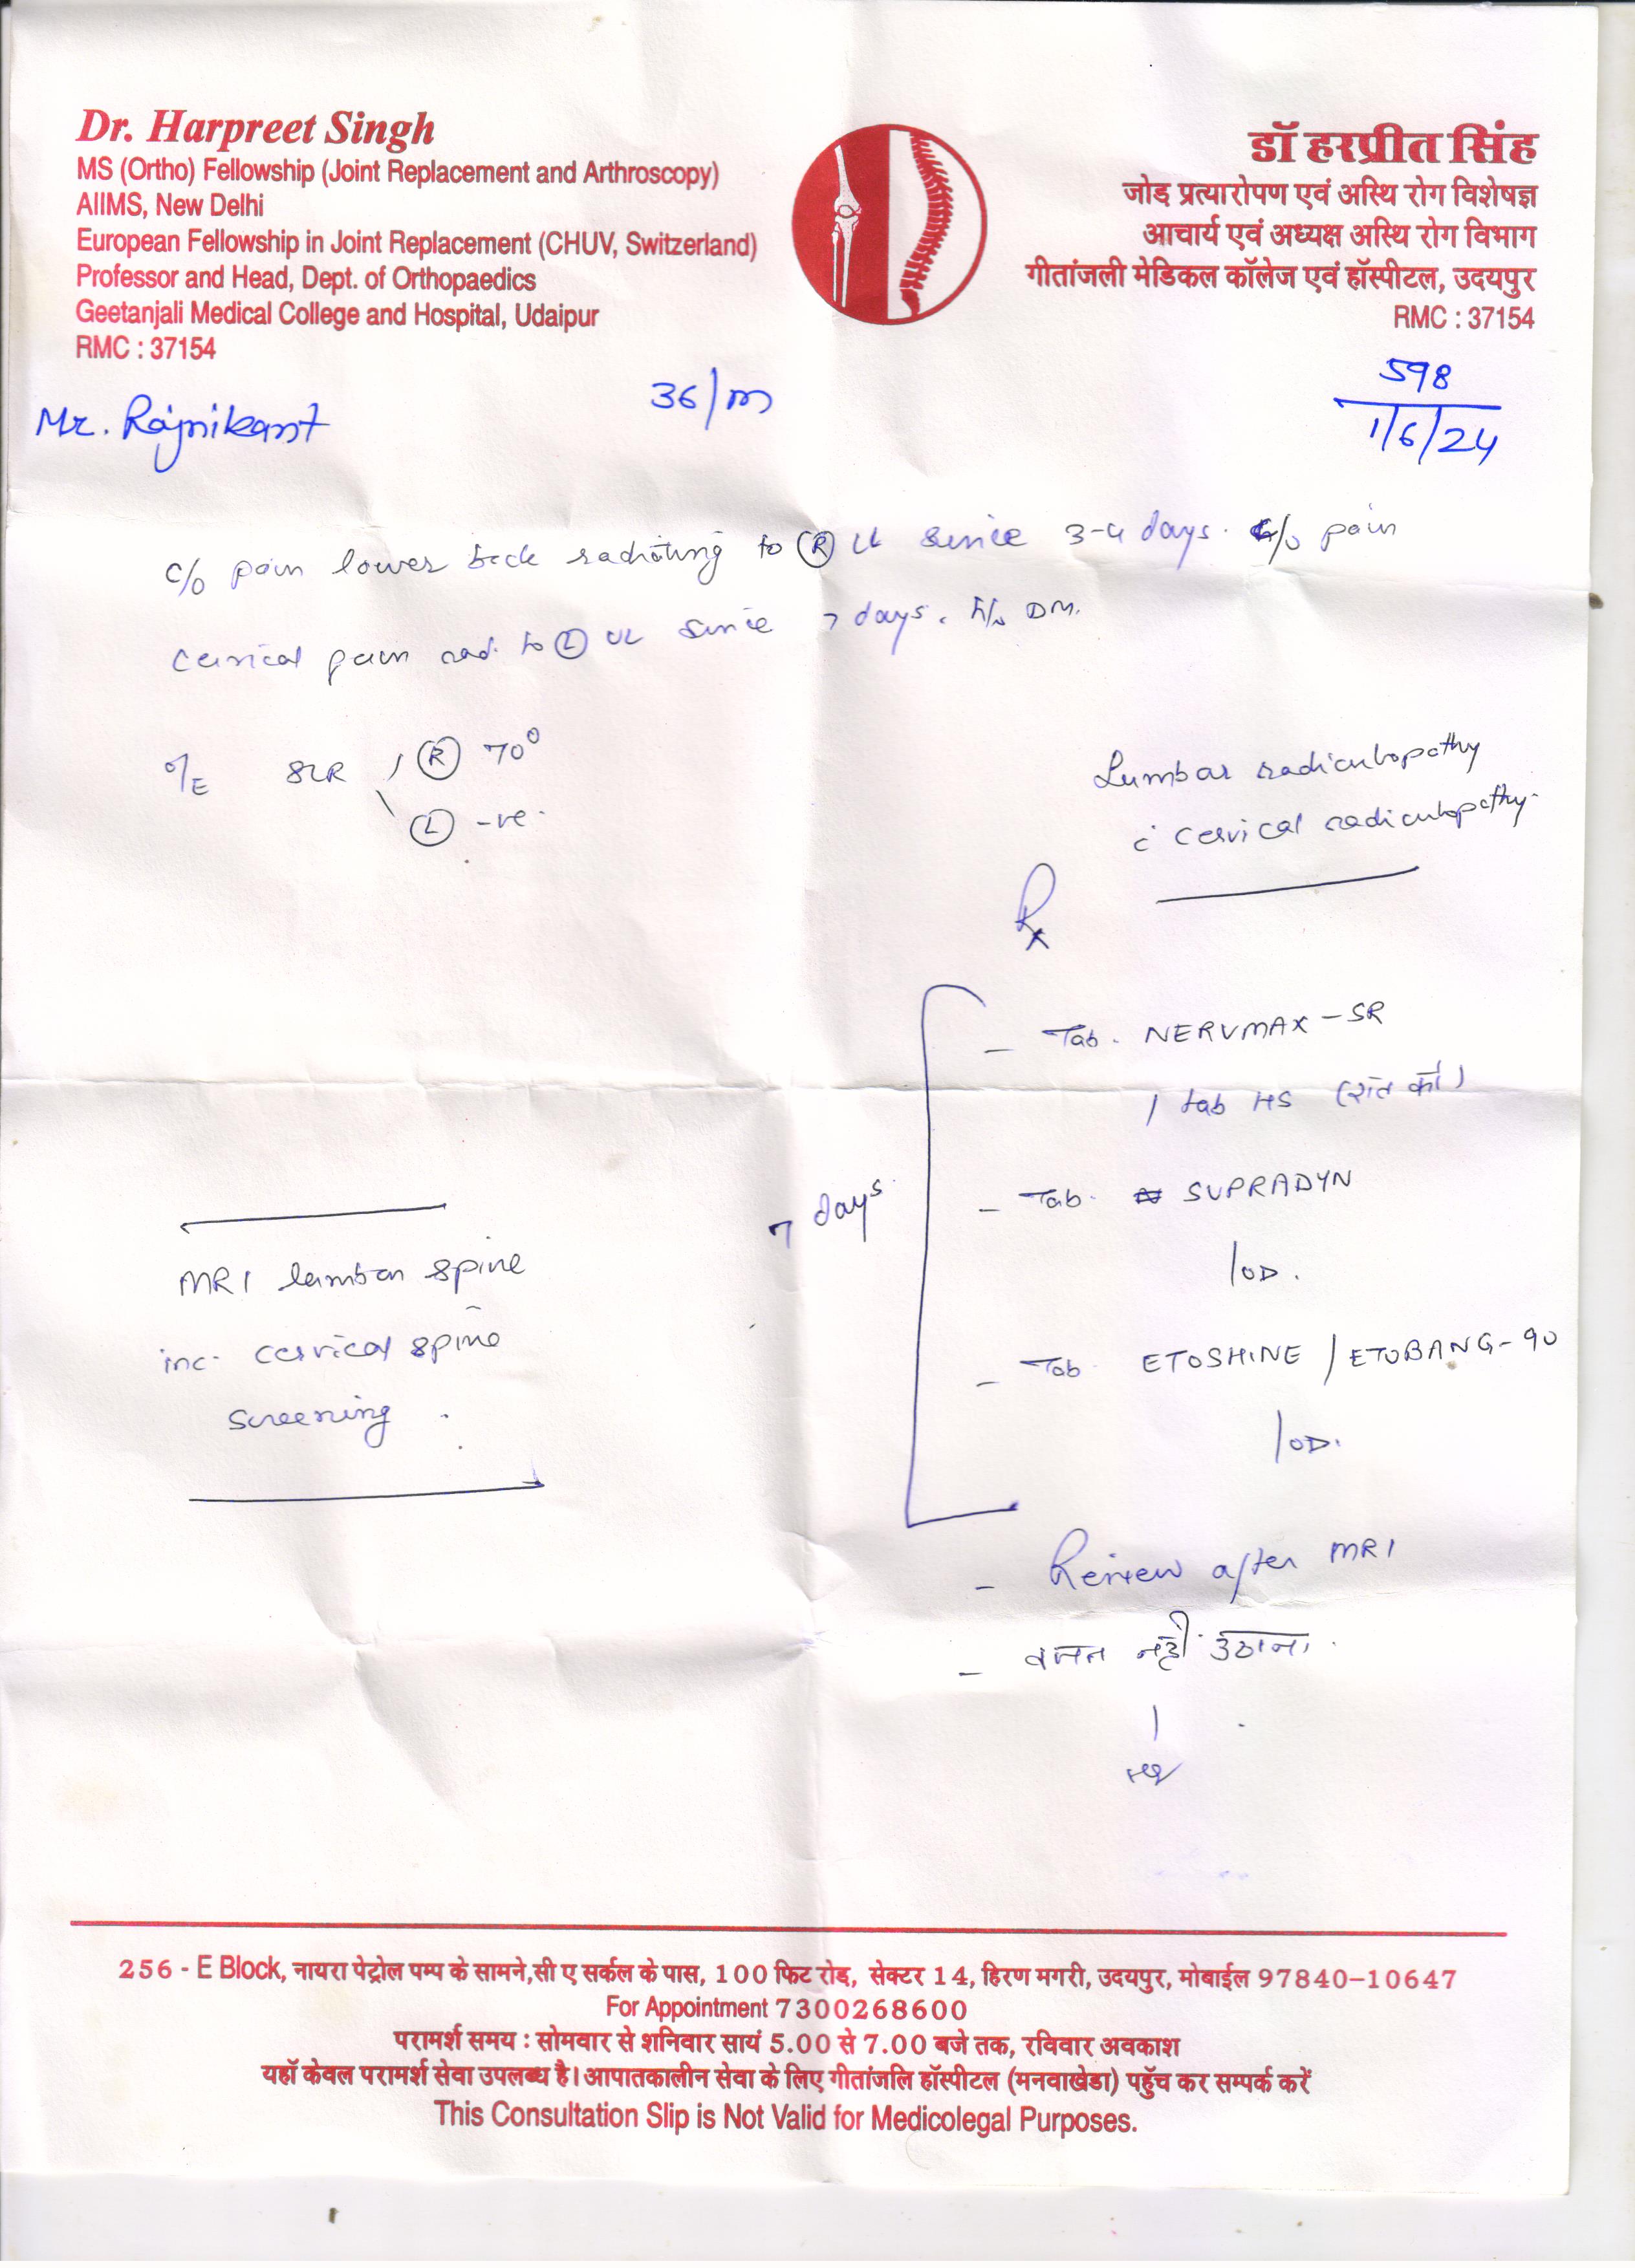 Dr. Harpreet Singh
MS (Ortho) Fellowship (Joint Replacement and Arthroscopy)
AIIMS, New Delhi
European Fellowship in Joint Replacement (CHUV, Switzerland)
Professor and Head, Dept. of Orthopaedics
Geetanjali Medical College and Hospital, Udaipur
RMC : 37154
डॉ हरप्रीत सिंह
जोड़ प्रत्यारोपण एवं अस्थि रोग विशेषज्ञ
आचार्य एवं अध्यक्ष अस्थि रोग विभाग
गीतांजली मेडिकल कॉलेज एवं हॉस्पीटल, उदयपुर
RMC : 37154
Mr. Rajnikant 36/m
598
1/6/24
c/o pain lower back radiating to (R) LL since 3-4 days. c/o pain
cervical pain rad. to (L) UL since 7 days. h/o DM.
O/E SLR (R) 70°
(L) -ve.
Lumbar radiculopathy
c̄ cervical radiculopathy.
Rx
- Tab. NERVMAX-SR
1 tab HS (रात को)
- Tab. SUPRADYN
1 OD.
- Tab ETOSHINE / ETOBANG-90
1 OD.
7 days
MRI lumbar spine
inc. cervical spine
screening.
- Review after MRI
- वजन नही उठाना.
256 - E Block, नायरा पेट्रोल पम्प के सामने,सी ए सर्कल के पास, 100 फिट रोड, सेक्टर 14, हिरण मगरी, उदयपुर, मोबाईल 97840-10647
For Appointment 7300268600
परामर्श समय : सोमवार से शनिवार सायं 5.00 से 7.00 बजे तक, रविवार अवकाश
यहॉ केवल परामर्श सेवा उपलब्ध है। आपातकालीन सेवा के लिए गीतांजलि हॉस्पीटल (मनवाखेडा) पहुँच कर सम्पर्क करें
This Consultation Slip is Not Valid for Medicolegal Purposes.